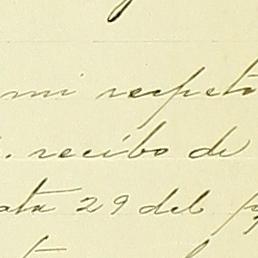 mi respeto
recibo de
ata 29 del p